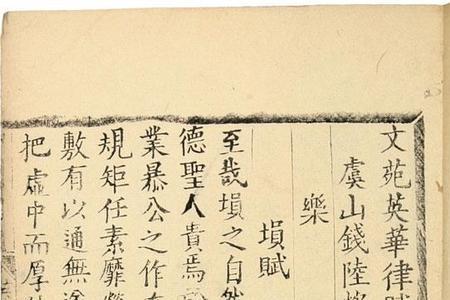 文苑英華律賦
虞山錢陸
樂
塤賦
至哉塤之自然
德聖人貴焉
業暴公之作
規矩任素靡
敷有以通無
把虛中而厚